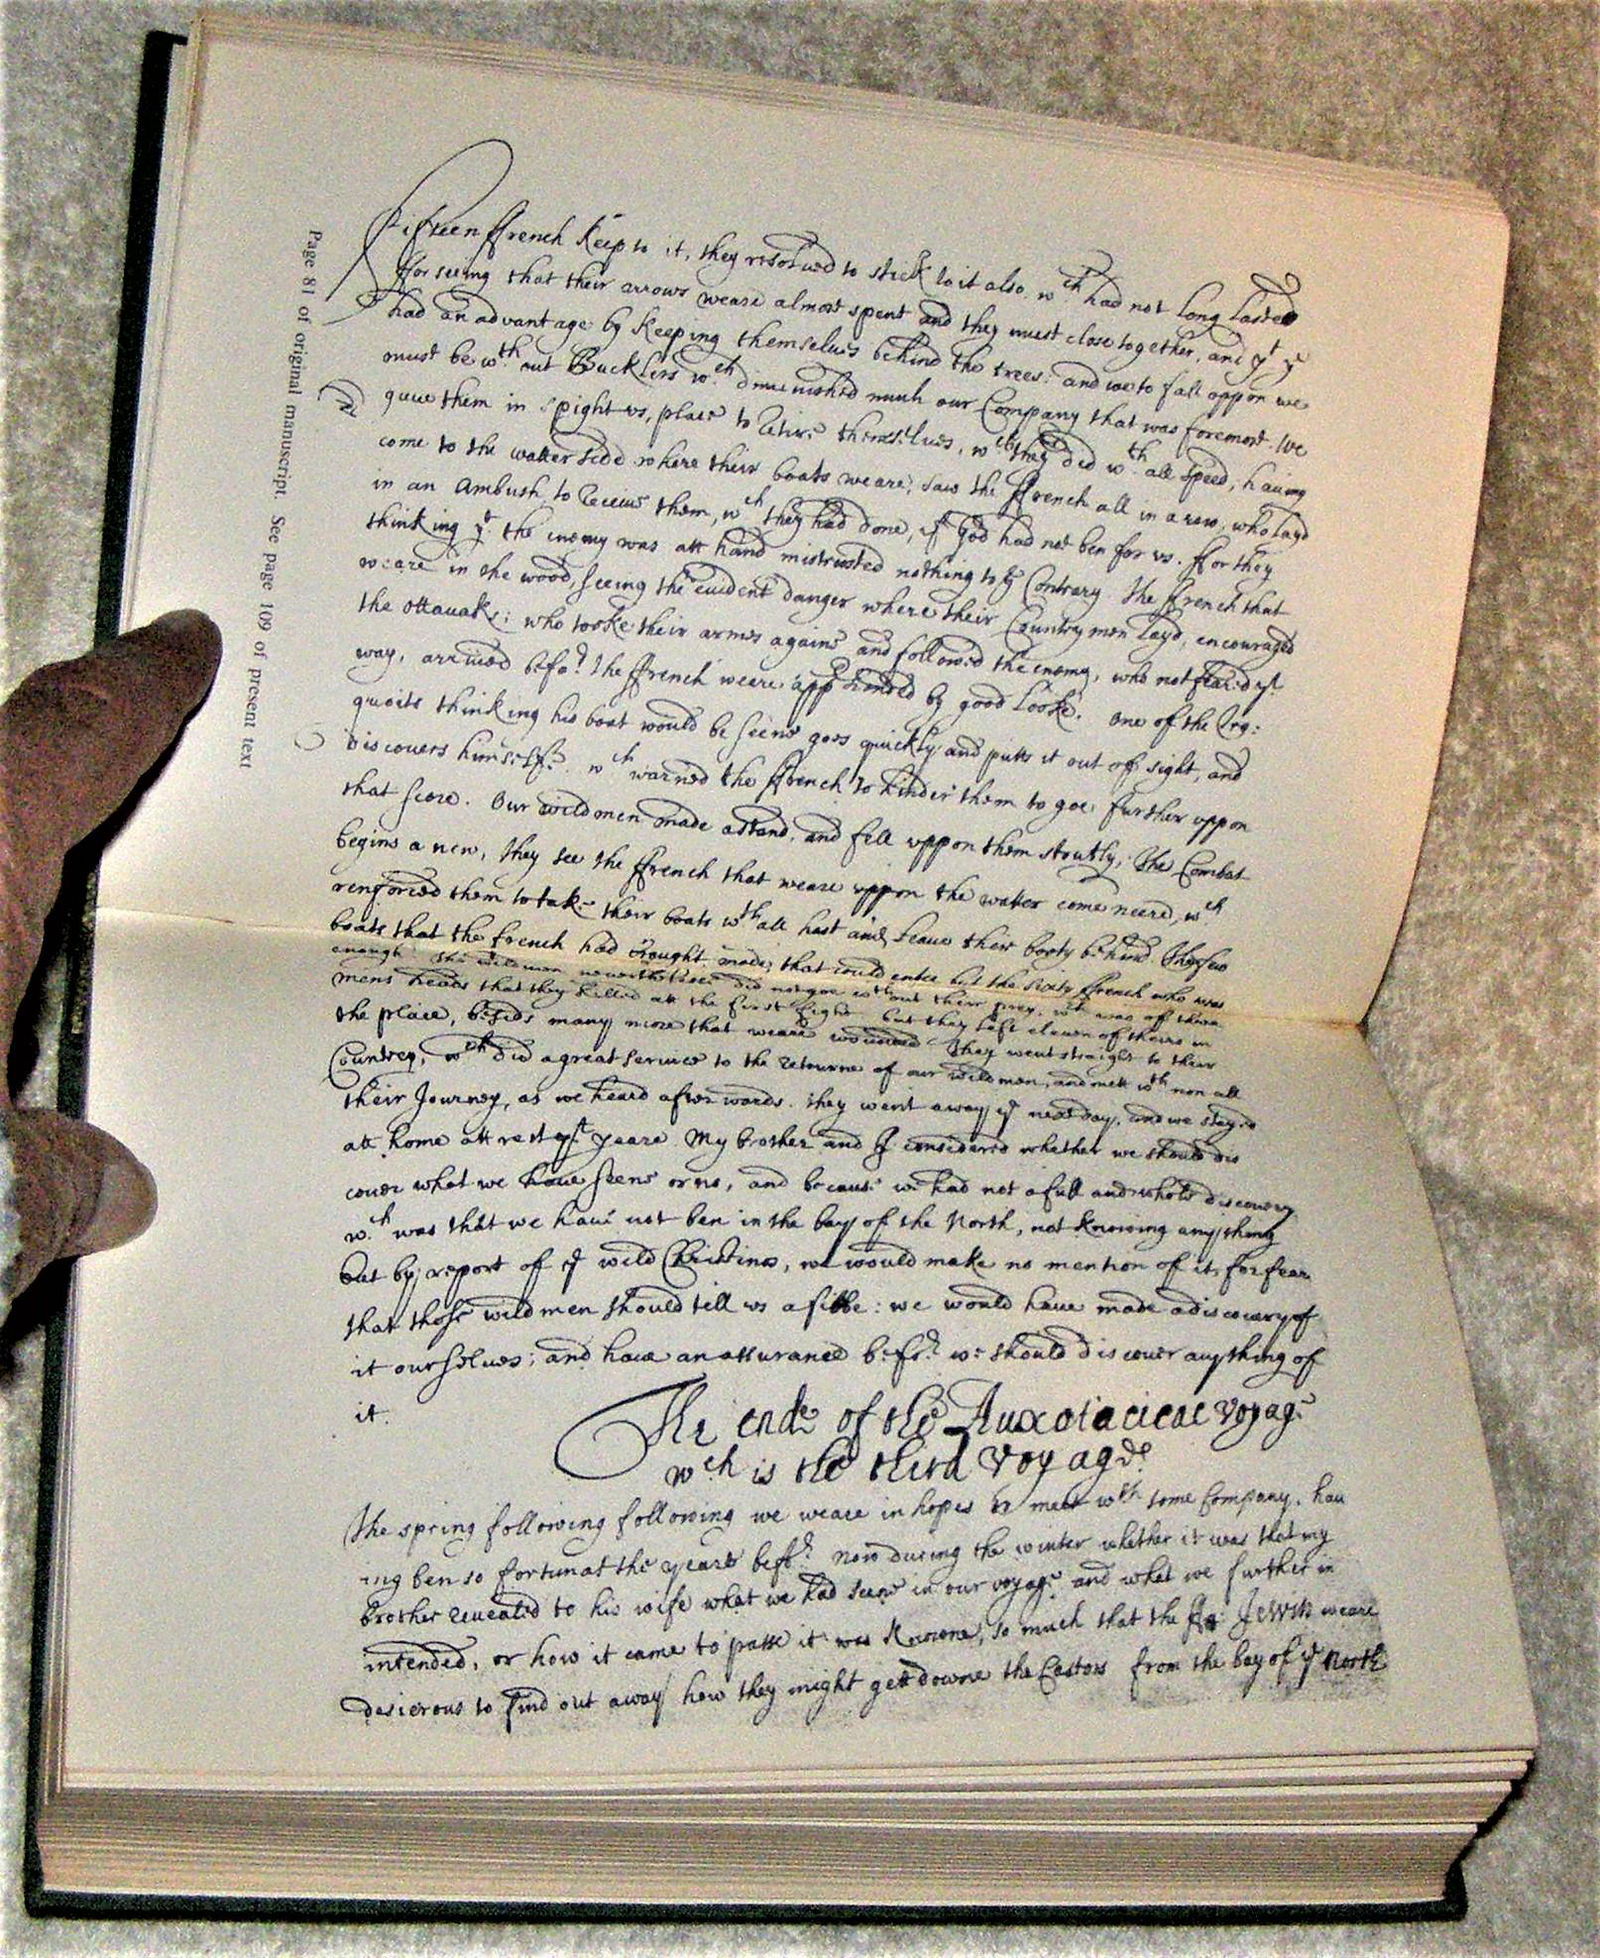 Fifteen ffrench keep to it, they resolved to stick to it also. wch had not long lasted
ffor seeing that their arrows weare almost spent and they must close together, and yt ye
had an advantage by keeping themselves behind the trees: and we to fall uppon we
must be wth out Bucklers wch diminished much our Company that was foremost. We
gave them in spight us, place to retire themselves, wch they did wth all speed, having
come to the watter side where their boats weare, saw the ffrench all in a row, who layd
in an Ambush to receive them, wch they had done, if God had not ben for us. ffor they
thinking yt the enemy was att hand mistrusted nothing to ye Contrary. The ffrench that
weare in the wood, seeing the evident danger where their Countrymen layd, encouraged
the Ottauaks; who tooke their armes againe and followed the enemy, who not feared yt
way, arrived befor the ffrench weare apprehended by good looke. One of the Irq:
quoits thinking his boat would be seene goes quickly and putts it out off sight, and
discovers himselfe. wch warned the ffrench to hinder them to goe further uppon
that score. Our wildmen made a stand, and fell uppon them stoutly, The Combat
begins a new, they see the ffrench that weare uppon the watter come neere, wch
renforced them to take their boats wth all hast and leave their booty behind. The few
boats that the french had brought made, that could enter but the sixty ffrench who was
enough. The wildmen neverthelesse did not goe without their prey, wch was off three
mens heads that they killed att the first fight but they left eleven off theirs in
the place, besids many more that weare wounded. They went straight to their
Countrey, wch did a great service to the retourne of our wildmen, and mett wth non all
their Journey, as we heard afterwards. They went away ye next day, and we stayed
att home att rest yt yeare. My brother and I considered whether we should dis
cover what we have seene or no, and because we had not a full and whole discovery
wch was that we have not ben in the bay of the North, not knowing anything
but by report of ye wild Christinos, we would make no mention of it, for fear
that those wildmen should tell us a fible: we would have made a discovery of
it ourselves; and have an assurance befor we should discover anything of
it.
The ende of the Auxotacicac voyage
wch is the third voyage.
The spring following following we weare in hopes to meet wth some Company, hav
ing ben so fortunat the yeare befor. Now during the winter whether it was that my
brother revealed to his wife what we had seene in our voyage and what we further in
intended, or how it came to passe it was knowne, so much that the ffa: Jewits weare
desierous to find out a way how they might gett downe the Castors from the bay of ye North
Page 81 of original manuscript. See page 109 of present text